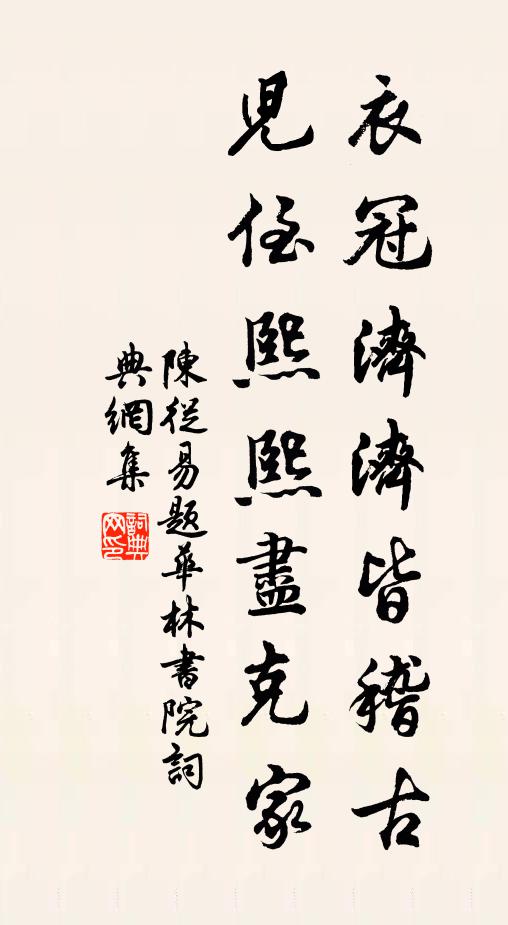 衣冠濟濟皆稽古
兒侄熙熙盡克家
陳從易題華林書院詞
典網集
詞典網印